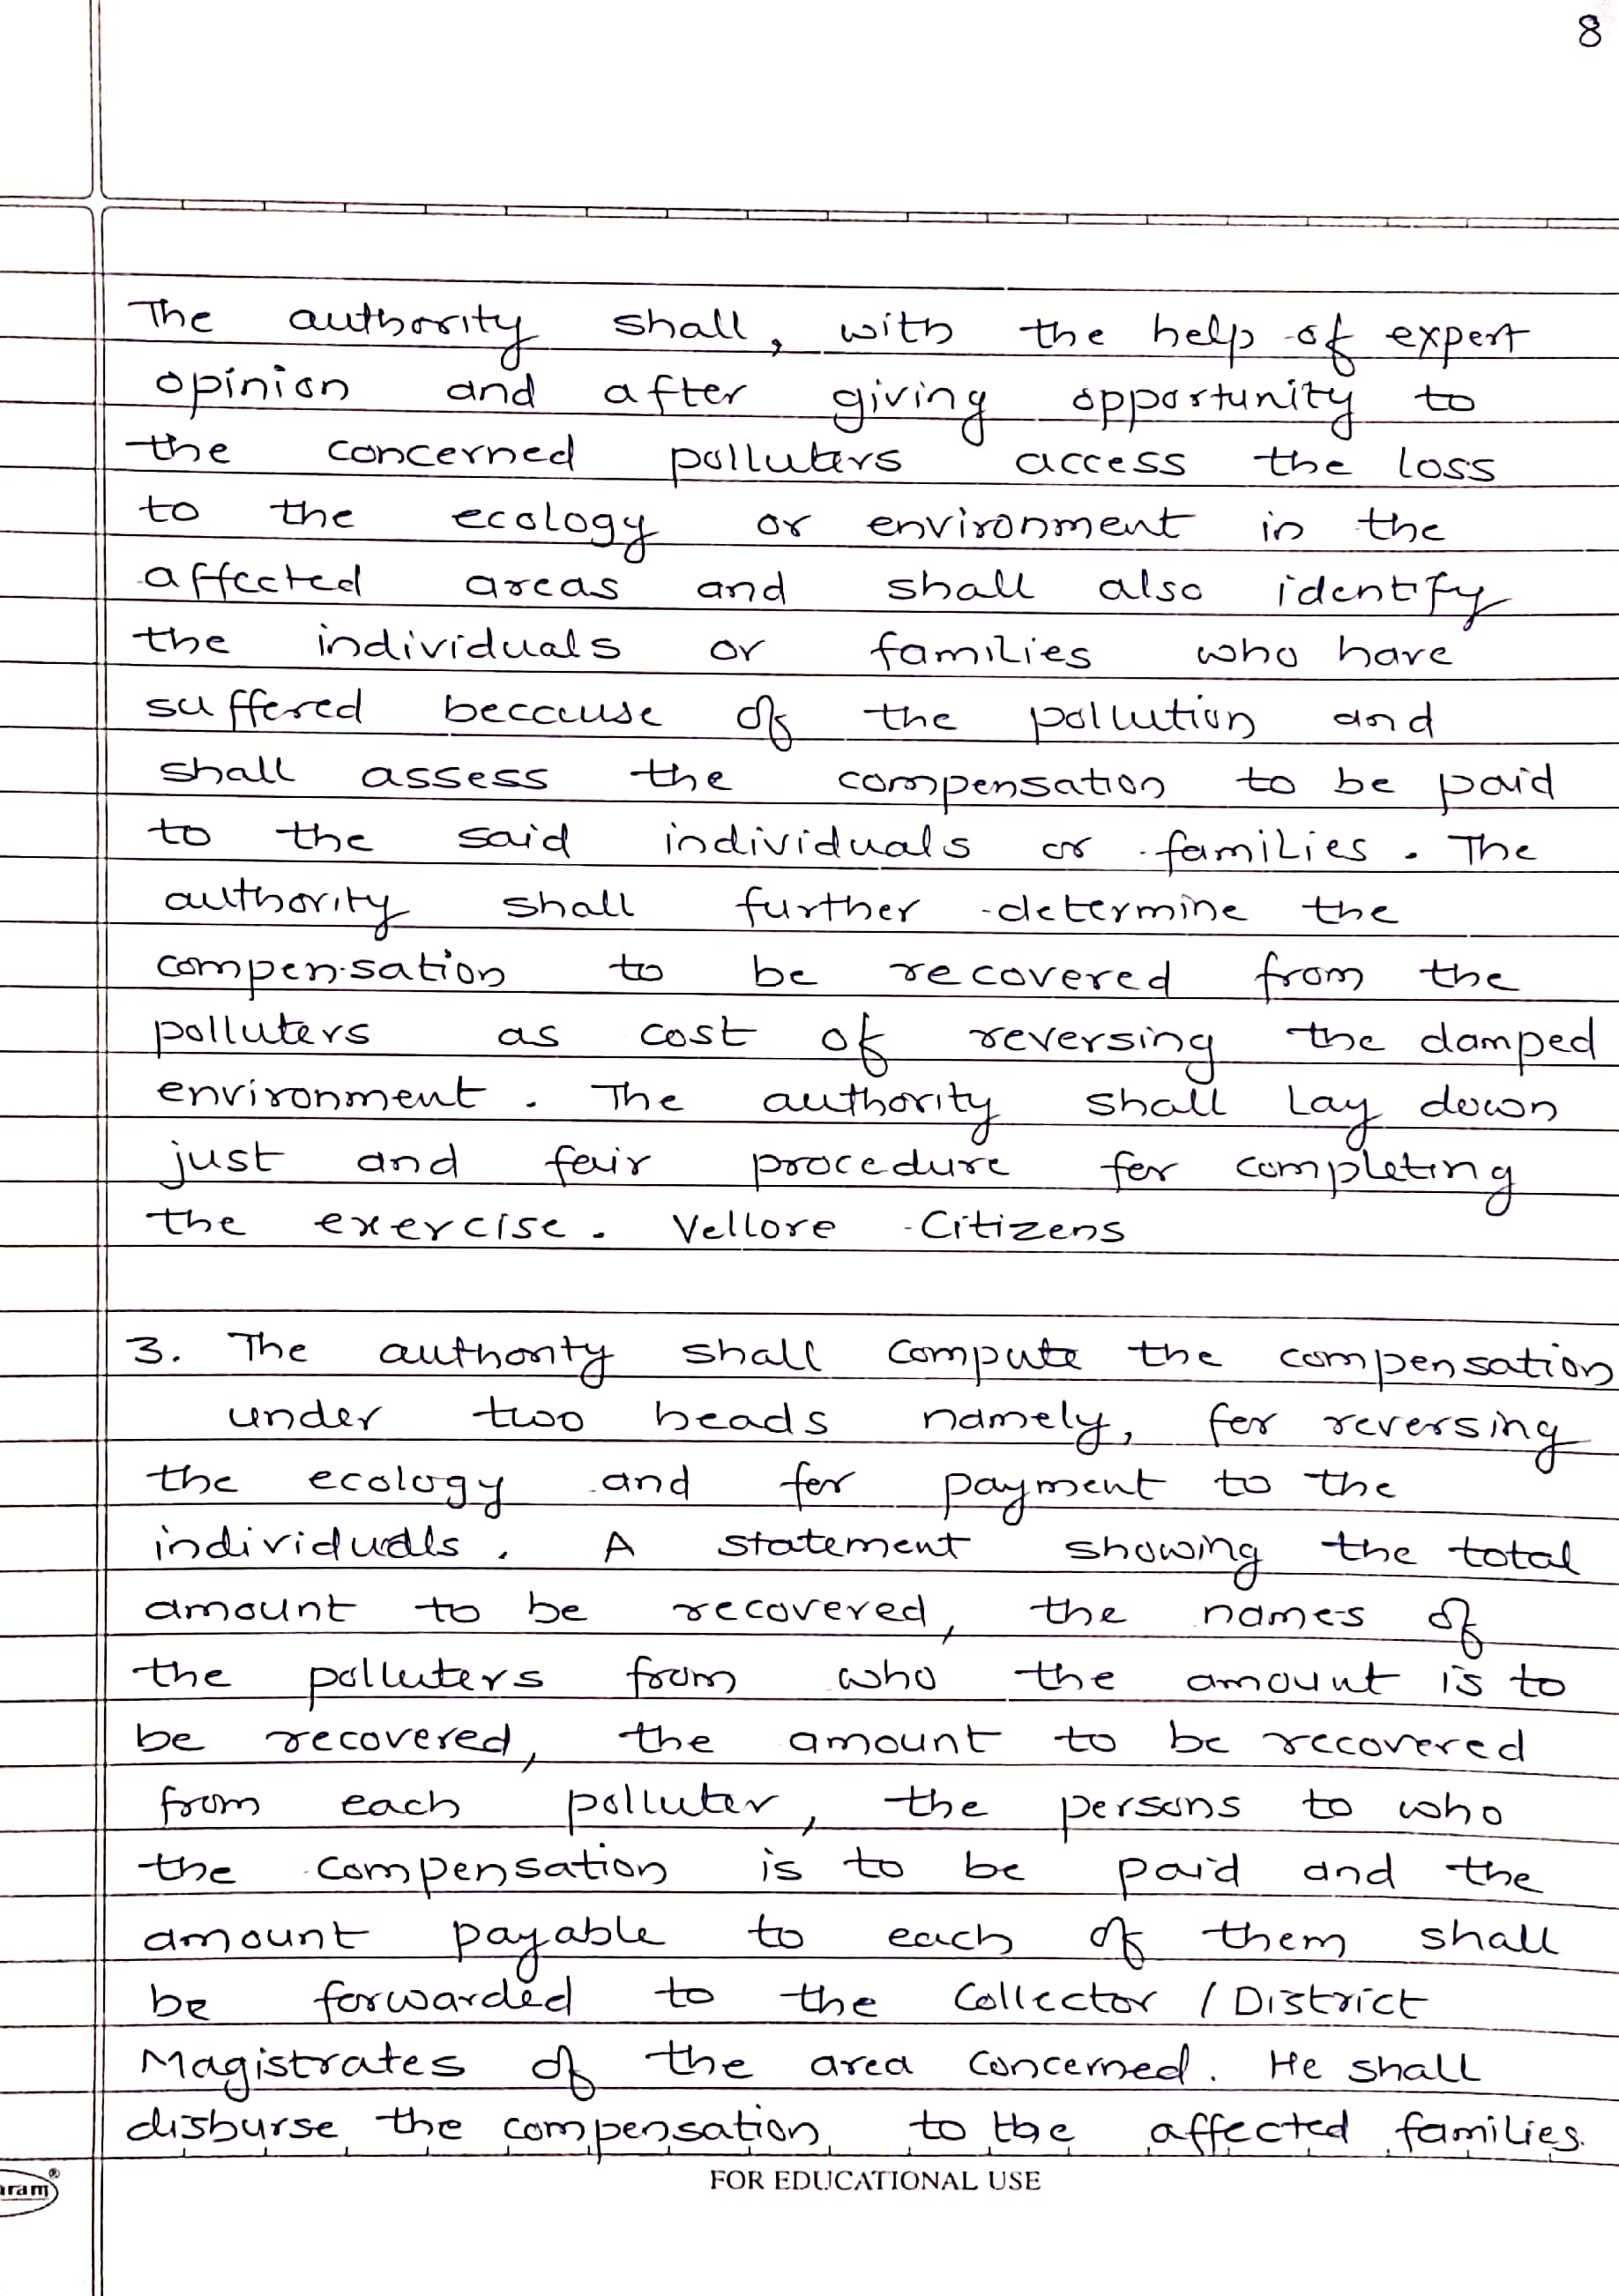 8
The authority shall, with the help of expert
opinion and after giving opportunity to
the concerned polluters access the loss
to the ecology or environment in the
affected areas and shall also identify
the individuals or families who have
suffered because of the pollution and
shall assess the compensation to be paid
to the said individuals or families. The
authority shall further determine the
compensation to be recovered from the
polluters as cost of reversing the damped
environment. The authority shall lay down
just and fair procedure for completing
the exercise. Vellore Citizens
3. The authority shall compute the compensation
under two heads namely, for reversing
the ecology and for payment to the
individuals. A statement showing the total
amount to be recovered, the names of
the polluters from who the amount is to
be recovered, the amount to be recovered
from each polluter, the persons to who
the compensation is to be paid and the
amount payable to each of them shall
be forwarded to the Collector / District
Magistrates of the area concerned. He shall
disburse the compensation to the affected families.
aram®
FOR EDUCATIONAL USE